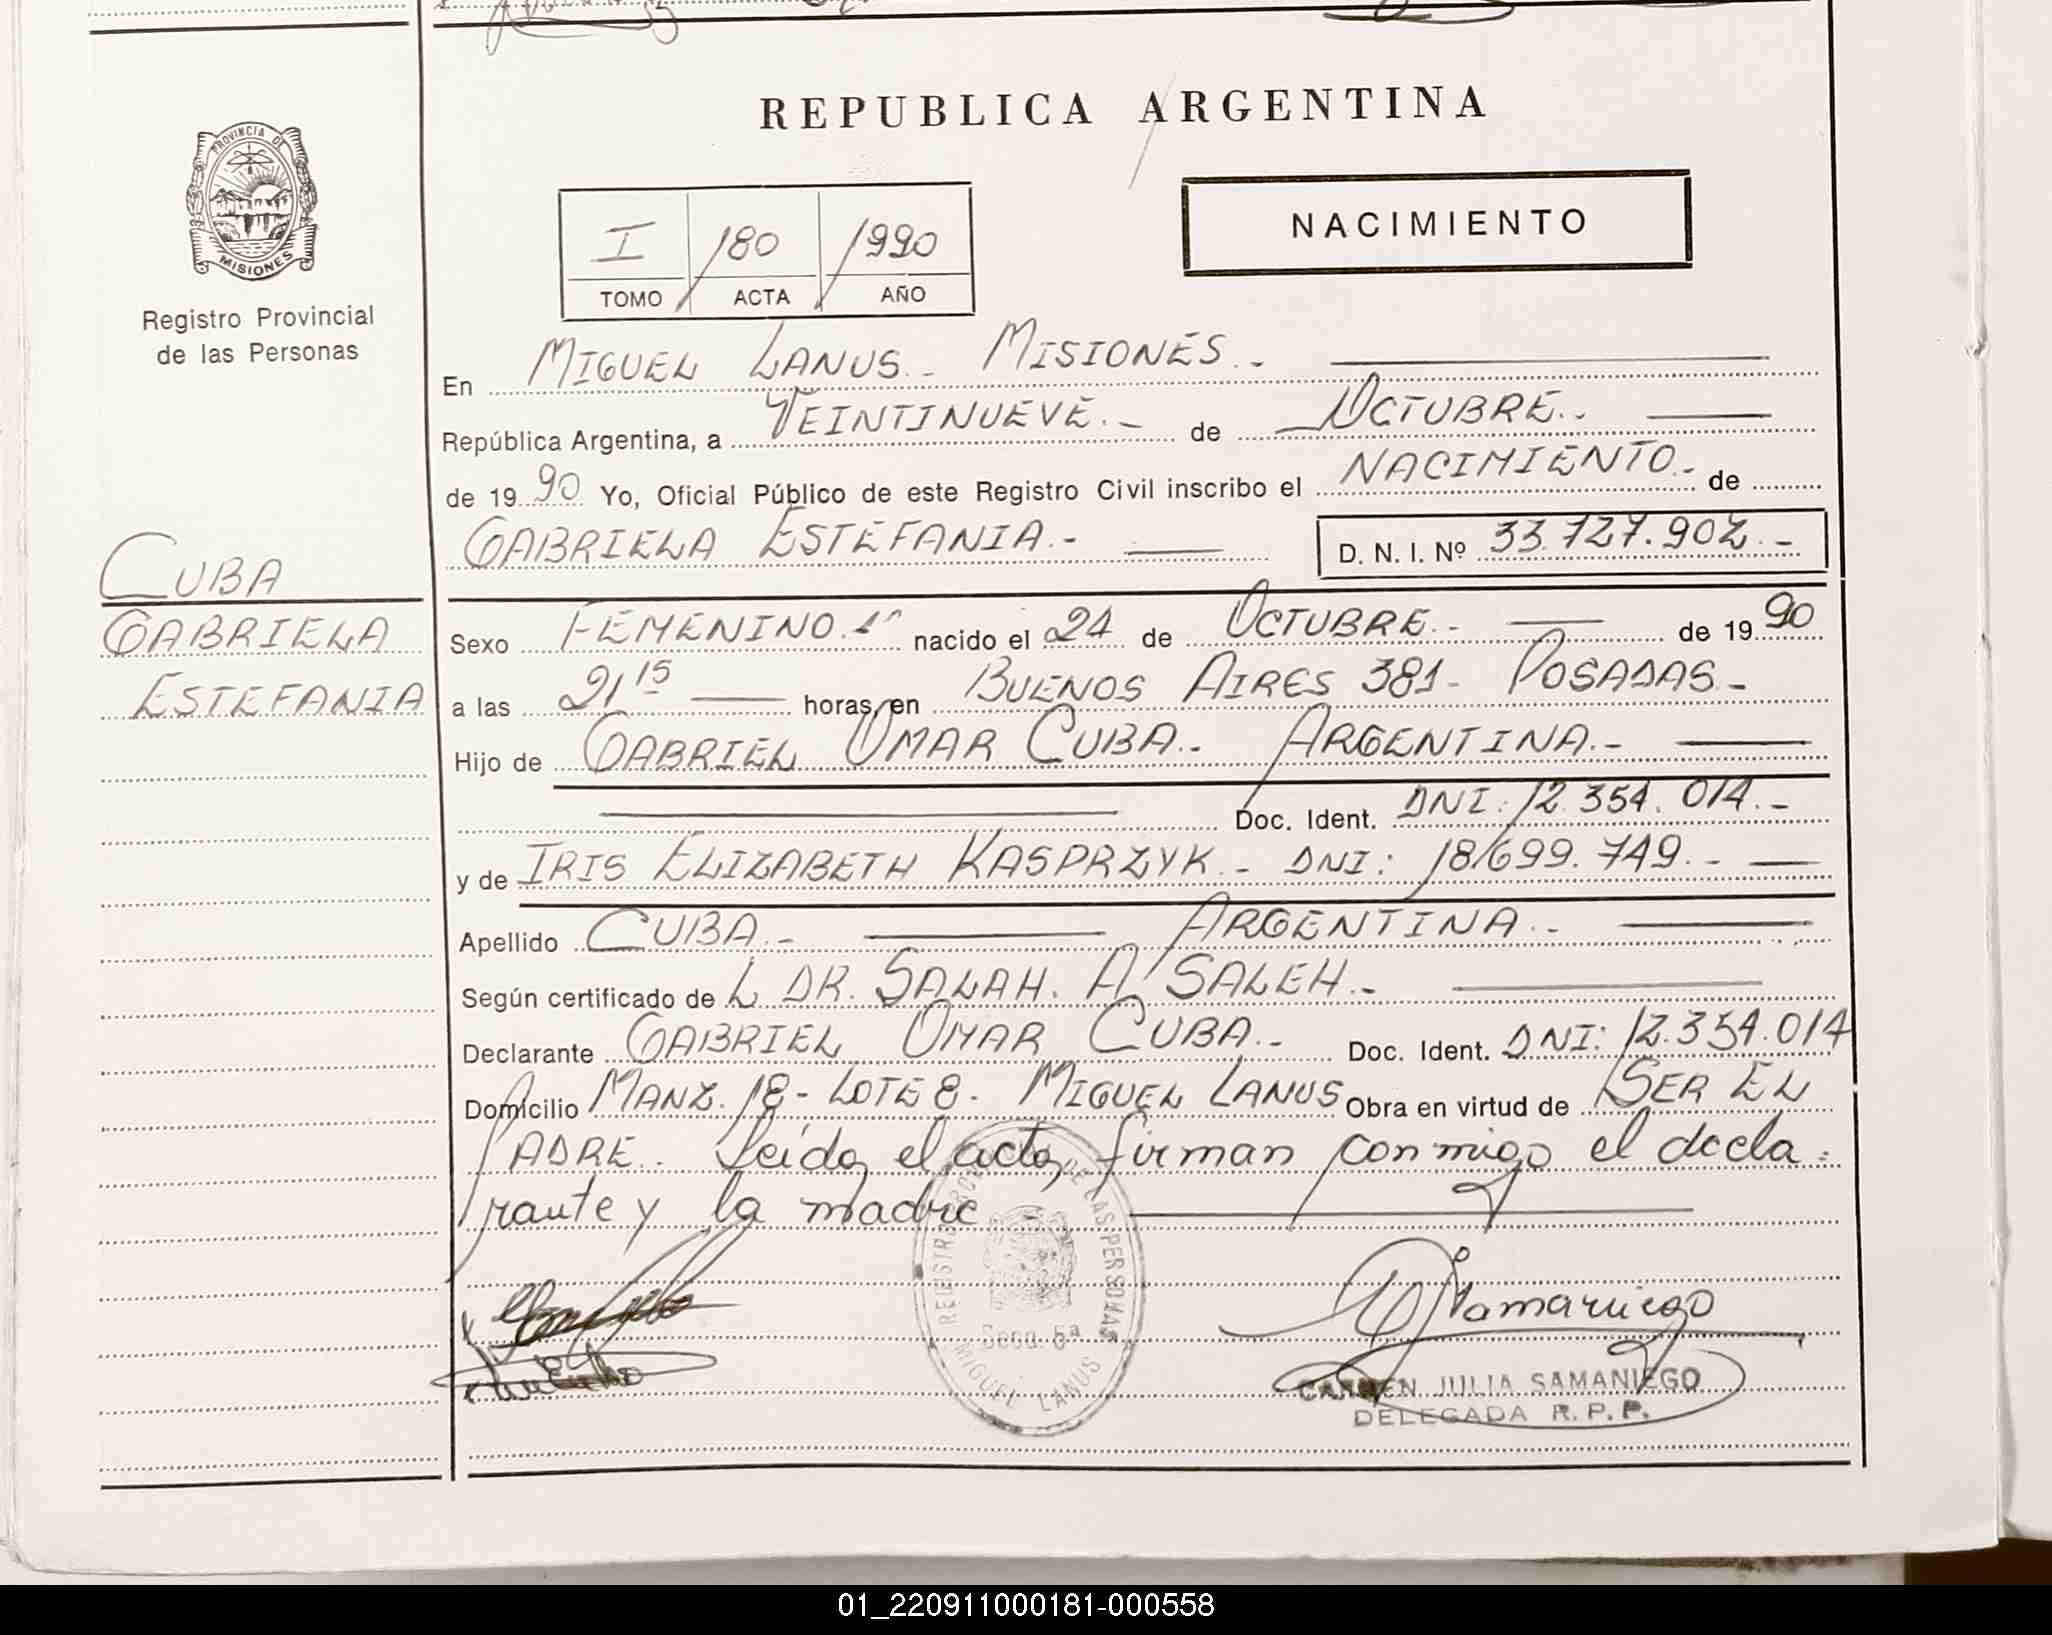 REPUBLICA ARGENTINA
PROVINCIA DE
MISIONES
Registro Provincial
de las Personas
I 180 1990
TOMO ACTA AÑO
NACIMIENTO
En MIGUEL LANUS - MISIONES.-
República Argentina, a VEINTINUEVE.- de OCTUBRE.-
de 1990 Yo, Oficial Público de este Registro Civil inscribo el NACIMIENTO.- de
GABRIELA ESTEFANIA.- D. N. I. Nº 33.727.902.-
CUBA
GABRIELA
ESTEFANIA
Sexo FEMENINO.- nacido el 24 de OCTUBRE.- de 1990
a las 21 15 horas, en BUENOS AIRES 381- POSADAS.-
Hijo de GABRIEL OMAR CUBA.- ARGENTINA.-
Doc. Ident. DNI: 12.354.014.-
y de IRIS ELIZABETH KASPRZYK.- DNI: 18.699.749.-
Apellido CUBA.- ARGENTINA.-
Según certificado de L DR. SALAH. A SALEH.-
Declarante GABRIEL OMAR CUBA.- Doc. Ident. DNI: 12.354.014
Domicilio MANZ. 18- LOTE 8. MIGUEL LANUS Obra en virtud de SER EL
PADRE. Leída el acta, firman conmigo el decla-
rante y la madre.-
REGISTRO DE LAS PERSONAS
Secc. 5ª
MIGUEL LANUS
CARMEN JULIA SAMANIEGO
DELEGADA R. P. P.
01_220911000181-000558